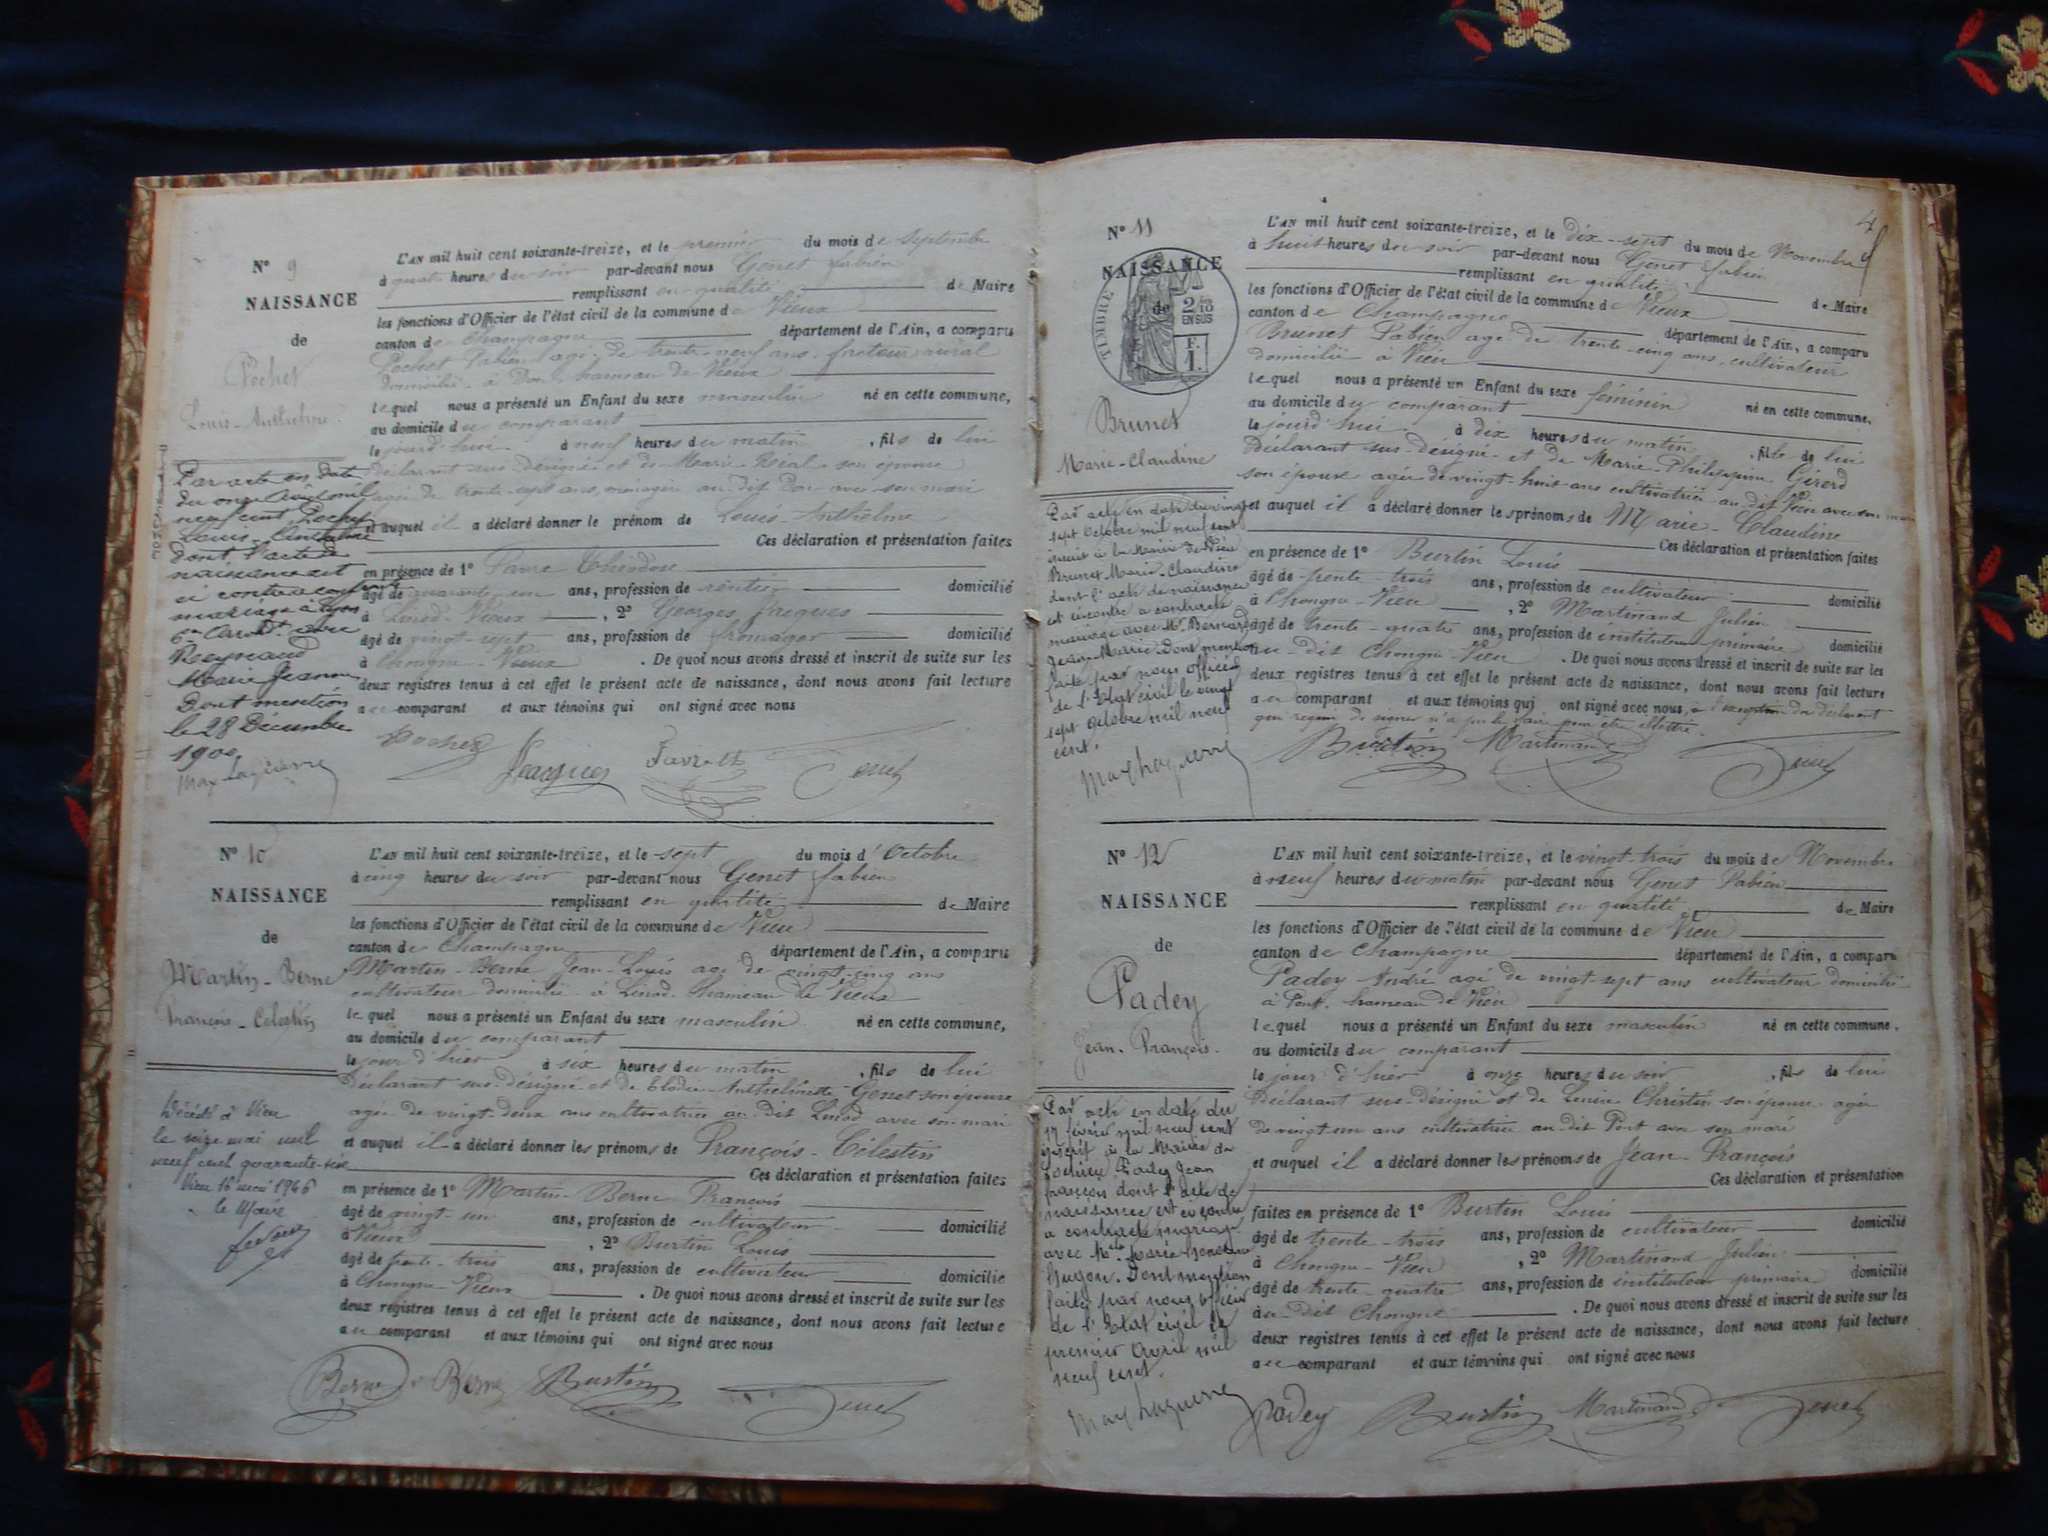 N° 9
NAISSANCE
de
Pochet
Louis-Anthelme
L'AN mil huit cent soixante-treize, et le premier du mois de Septembre
à quatre heures du soir par-devant nous Genet fabien
remplissant en qualité de Maire
les fonctions d'Officier de l'état civil de la commune de Vieux
canton de Champagne département de l'Ain, a comparu
Pochet Fabien agé de trente-neuf ans facteur rural
domicilié à Don hameau de Vieux
lequel nous a présenté un Enfant du sexe masculin né en cette commune,
au domicile du comparant
le jourd'hui à neuf heures du matin, fils de lui
déclarant sus-désigné et de Marie Réal son épouse
agée de trente-sept ans, ménagère au dit Don avec son mari
et auquel il a déclaré donner le prénom de Louis-Anthelme
Ces déclaration et présentation faites
en présence de 1° Théodose
âgé de quarante un ans, profession de rentier domicilié
à Linod-Vieux, 2° Georges Jacques
âgé de vingt-sept ans, profession de fromager domicilié
à Chongne-Vieux. De quoi nous avons dressé et inscrit de suite sur les
deux registres tenus à cet effet le présent acte de naissance, dont nous avons fait lecture
au comparant et aux témoins qui ont signé avec nous
Pochet Jacques Genet
Par acte en date
du onze mil
neuf cent Pochet
Louis-Anthelme
dont l'acte de
naissance est
ci contre a contracté
mariage à Lyon
6e Arrondt. avec
Reynaud
Marie Jeanne
Dont mention
le 28 Décembre
1900
Max Laguerre
N° 10
NAISSANCE
de
Martin-Berne
François-Célestin
L'AN mil huit cent soixante-treize, et le sept du mois d'Octobre
à cinq heures du soir par-devant nous Genet fabien
remplissant en qualité de Maire
les fonctions d'Officier de l'état civil de la commune de Vieu
canton de Champagne département de l'Ain, a comparu
Martin-Berne Jean-Louis agé de vingt-cinq ans
cultivateur domicilié à Linod hameau de Vieux
lequel nous a présenté un Enfant du sexe masculin né en cette commune,
au domicile du comparant
le jour d'hier à six heures du matin, fils de lui
déclarant sus-désigné et de Elodie-Anthelmette Genet son épouse
agée de vingt-deux ans cultivatrice au dit Linod avec son mari
et auquel il a déclaré donner les prénoms de François-Célestin
Ces déclaration et présentation faites
en présence de 1° Martin-Berne François
âgé de vingt-un ans, profession de cultivateur domicilié
à Vieux, 2° Burtin Louis
âgé de trente-trois ans, profession de cultivateur domicilié
à Chongne-Vieux. De quoi nous avons dressé et inscrit de suite sur les
deux registres tenus à cet effet le présent acte de naissance, dont nous avons fait lecture
au comparant et aux témoins qui ont signé avec nous
Berne Berne Burtin Genet
Décédé à Vieu
le seize mai mil
neuf cent quarante-six
Vieu 16 mai 1946
le Maire
4
N° 11
NAISSANCE
de
TIMBRE
2/10
EN SUS
F.
1.
Brunet
Marie-Claudine
L'AN mil huit cent soixante-treize, et le dix-sept du mois de Novembre
à huit heures du soir par-devant nous Genet fabien
remplissant en qualité de Maire
les fonctions d'Officier de l'état civil de la commune de Vieux
canton de Champagne département de l'Ain, a comparu
Brunet Fabien agé de trente-cinq ans, cultivateur
domicilié à Vieu
lequel nous a présenté un Enfant du sexe féminin né en cette commune,
au domicile du comparant
le jourd'hui à dix heures du matin, fille de lui
déclarant sus-désigné et de Marie-Philippine Girerd
son épouse agée de vingt-huit ans cultivatrice au dit Vieu avec son mari
et auquel il a déclaré donner les prénoms de Marie-Claudine
Ces déclaration et présentation faites
en présence de 1° Burtin Louis
âgé de trente-trois ans, profession de cultivateur domicilié
à Chongne-Vieu, 2° Martinand Julien
âgé de trente-quatre ans, profession de instituteur primaire domicilié
au dit Chongne-Vieu. De quoi nous avons dressé et inscrit de suite sur les
deux registres tenus à cet effet le présent acte de naissance, dont nous avons fait lecture
au comparant et aux témoins qui ont signé avec nous, à l'exception du déclarant
qui requis de signer n'a pu le faire pour être illettré.
Burtin Martinand Genet
Par acte en date du vingt
sept Octobre mil neuf cent
inscrit à la Mairie de Vieu
Brunet Marie-Claudine
dont l'acte de naissance
est ci contre a contracté
mariage avec Mr Bernard
Jean-Marie. Dont mention
faite par nous officier
de l'Etat civil le vingt
sept Octobre mil neuf
cent.
Max Laguerre
N° 12
NAISSANCE
de
Padey
Jean-François.
L'AN mil huit cent soixante-treize, et le vingt-trois du mois de Novembre
à neuf heures du matin par-devant nous Genet Fabien
remplissant en qualité de Maire
les fonctions d'Officier de l'état civil de la commune de Vieu
canton de Champagne département de l'Ain, a comparu
Padey André agé de vingt-sept ans cultivateur domicilié
à Pont, hameau de Vieu
lequel nous a présenté un Enfant du sexe masculin né en cette commune,
au domicile du comparant
le jour d'hier à onze heures du soir, fils de lui
déclarant sus-désigné et de Christin son épouse agée
de vingt-un ans cultivatrice au dit Pont avec son mari
et auquel il a déclaré donner les prénoms de Jean-François
Ces déclaration et présentation
faites en présence de 1° Burtin Louis
âgé de trente-trois ans, profession de cultivateur domicilié
à Chongne-Vieu, 2° Martinand Julien
âgé de trente-quatre ans, profession de instituteur primaire domicilié
au dit Chongne. De quoi nous avons dressé et inscrit de suite sur les
deux registres tenus à cet effet le présent acte de naissance, dont nous avons fait lecture
au comparant et aux témoins qui ont signé avec nous
Padey Burtin Martinand Genet
Par acte en date du
17 février mil neuf cent
inscrit à la Mairie de
Padey Jean
françois dont l'acte de
naissance est ci contre
a contracté mariage
avec Mlle Marie
Hugon. Dont mention
faite par nous officier
de l'Etat civil le
premier Avril mil
neuf cent.
Max Laguerre